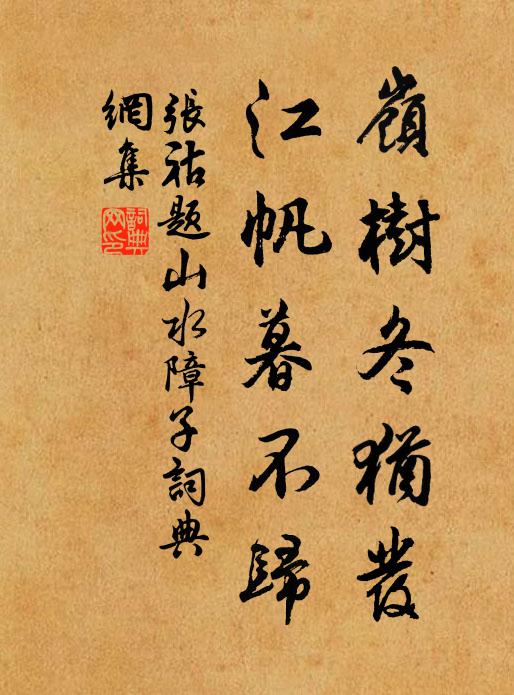 嶺樹冬猶發
江帆暮不歸
張祜題山水障子詞典
網集
詞典
网印